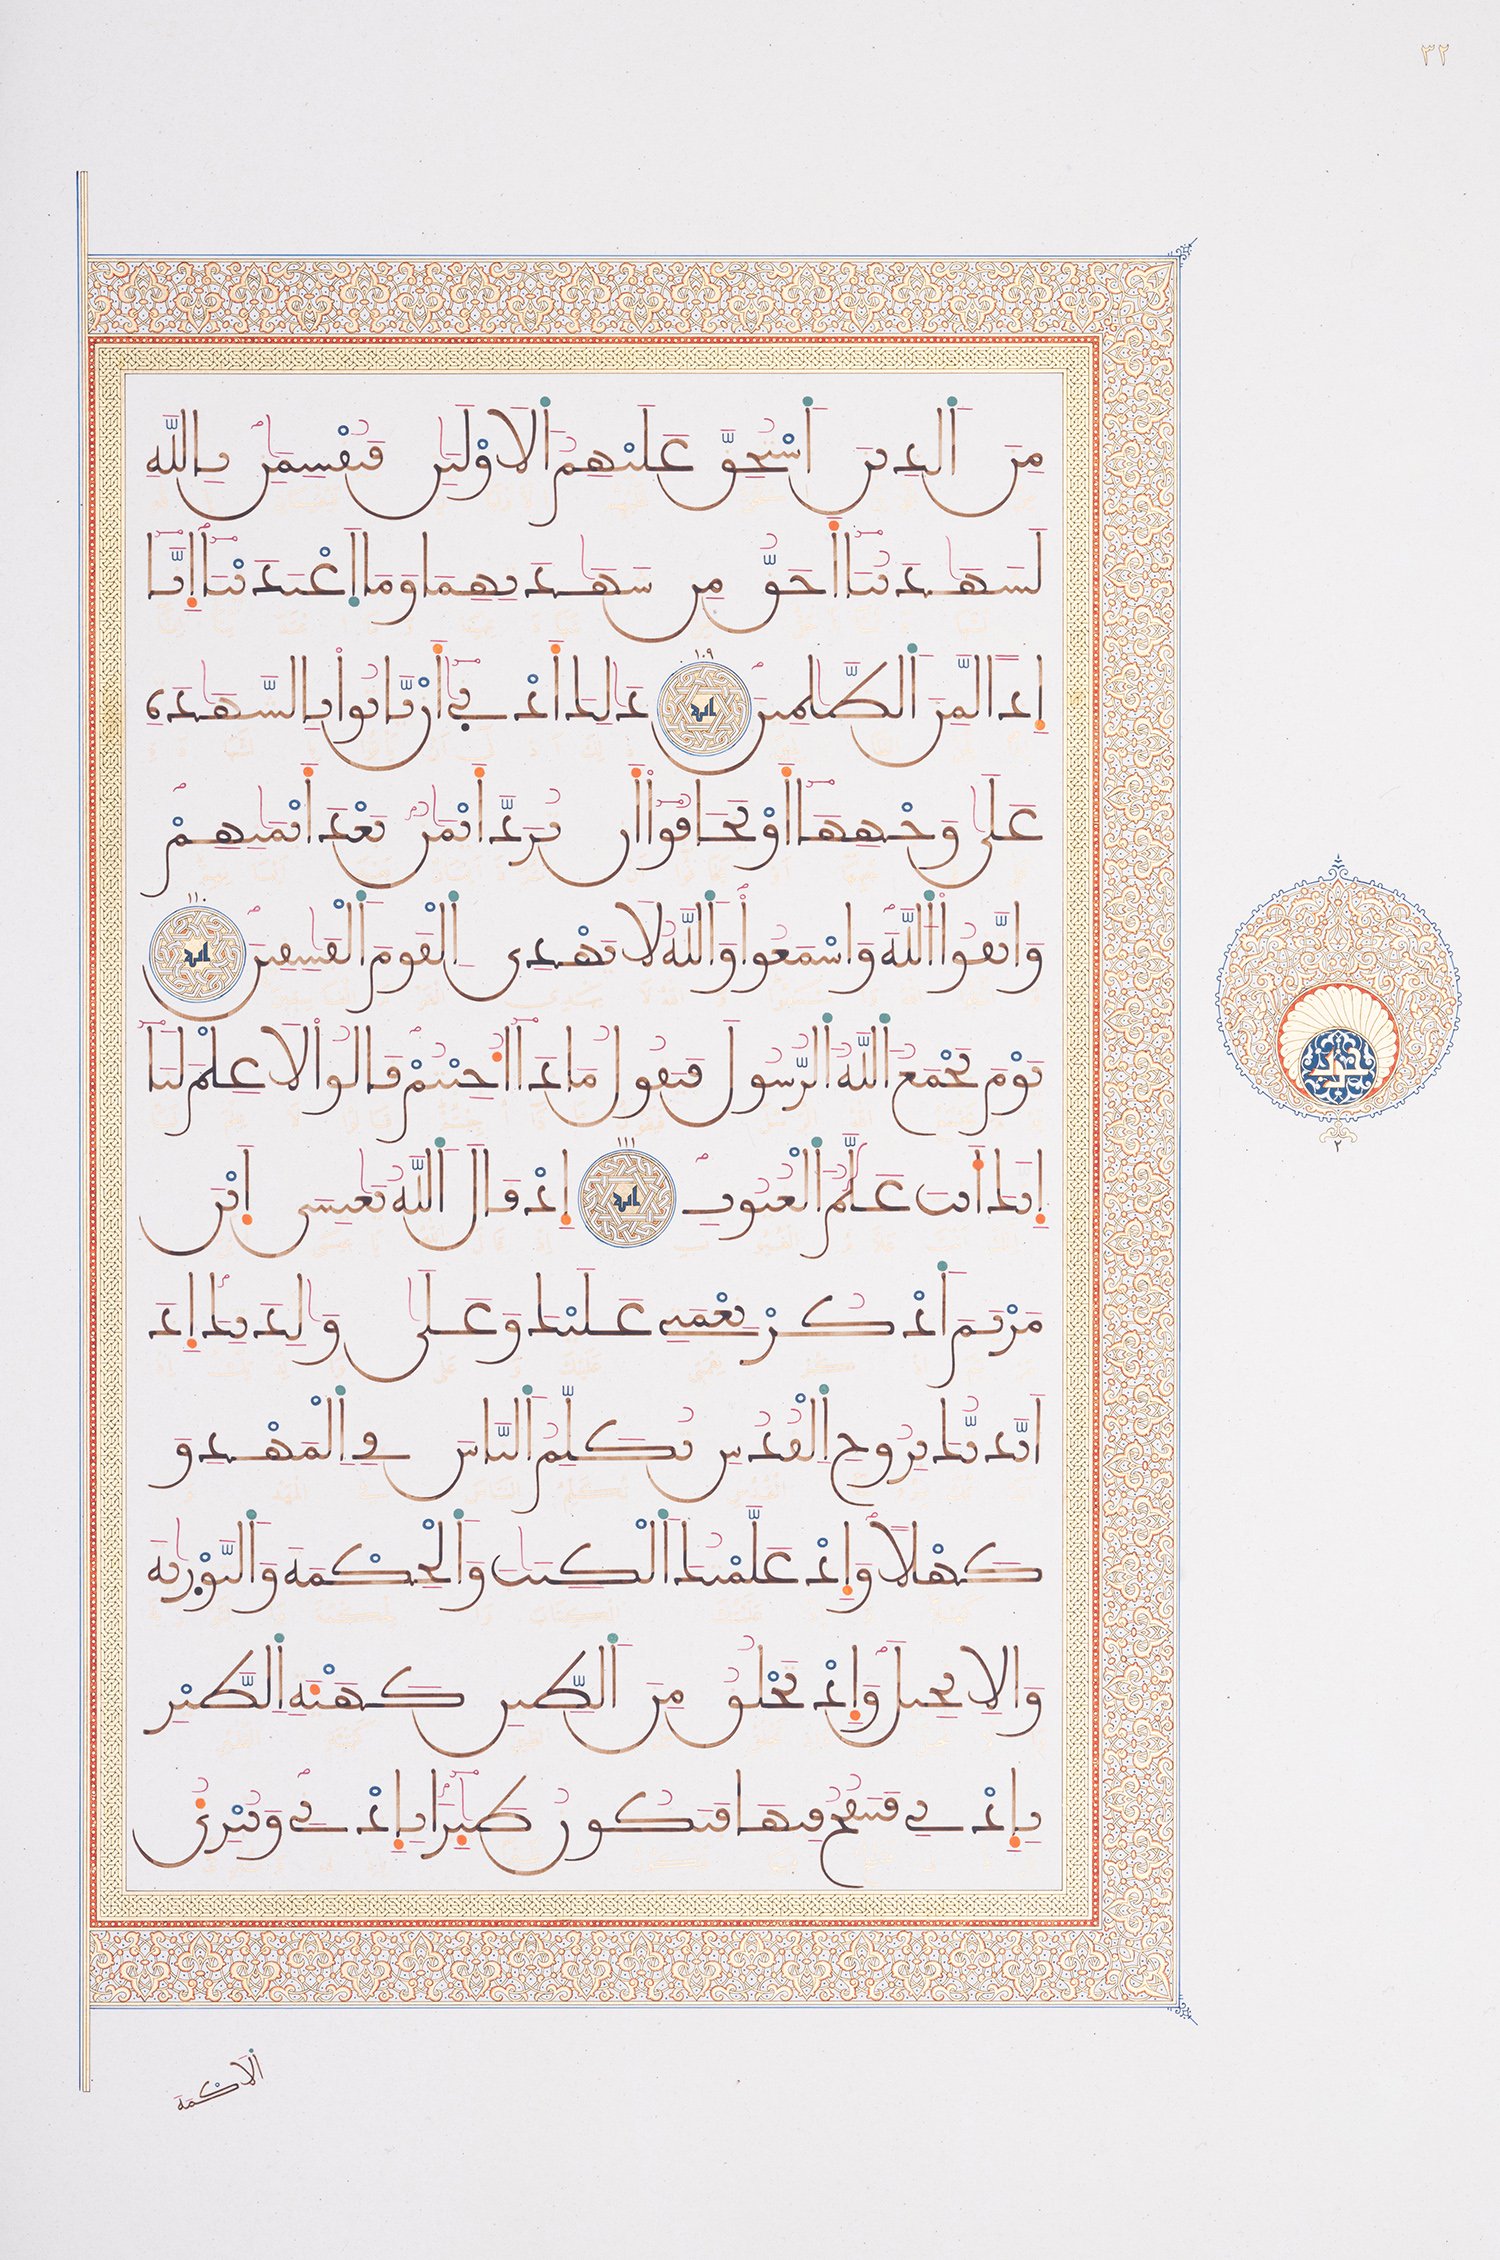 ٣٢
مِنَ ٱلذِينَ ٱسْتُحِقَّ عَلَيْهِمُ ٱلَاوْلَيَٰنِ فَيُقْسِمَٰنِ بِاللَّهِ
لَشَهَٰدَتُنَا أَحَقُّ مِن شَهَٰدَتِهِمَا وَمَا ٱعْتَدَيْنَا إِنَّا
إِذاً لَّمِنَ ٱلظَّٰلِمِينَ ١٠٩ ايه ذَٰلِكَ أَدْنَىٰ أَنْ يَّاتُوا بِالشَّهَٰدَةِ
عَلَىٰ وَجْهِهَا أَوْ يَخَافُوا أَن تُرَدَّ أَيْمَٰنٌ بَعْدَ أَيْمَٰنِهِمْ
وَاتَّقُوا ٱللَّهَ وَاسْمَعُوا وَٱللَّهُ لَا يَهْدِى ٱلْقَوْمَ ٱلْفَٰسِقِينَ ١١٠ ايه
يَوْمَ يَجْمَعُ ٱللَّهُ ٱلرُّسُلَ فَيَقُولُ مَاذَا أُجِبْتُمْ قَالُوا لَا عِلْمَ لَنَا
إِنَّكَ أَنتَ عَلَّٰمُ ٱلْغُيُوبِ ١١١ ايه إِذْ قَالَ ٱللَّهُ يَٰعِيسَى إِبْنَ
مَرْيَمَ ٱذْكُرْ نِعْمَتِى عَلَيْكَ وَعَلَىٰ وَٰلِدَتِكَ إِذَ
اَيَّدتُّكَ بِرُوحِ ٱلْقُدُسِ تُكَلِّمُ ٱلنَّاسَ فِى ٱلْمَهْدِ وَ
كَهْلاً وَإِذْ عَلَّمْتُكَ ٱلْكِتَٰبَ وَٱلْحِكْمَةَ وَٱلتَّوْرَىٰةَ
وَالِانجِيلَ وَإِذْ تَخْلُقُ مِنَ ٱلطِّينِ كَهَيْئَةِ ٱلطَّيْرِ
بِإِذْنِى فَتَنفُخُ فِيهَا فَتَكُونُ طَٰئِراً بِإِذْنِى وَتُبْرِئُ
ٱلَاكْمَهَ
٢